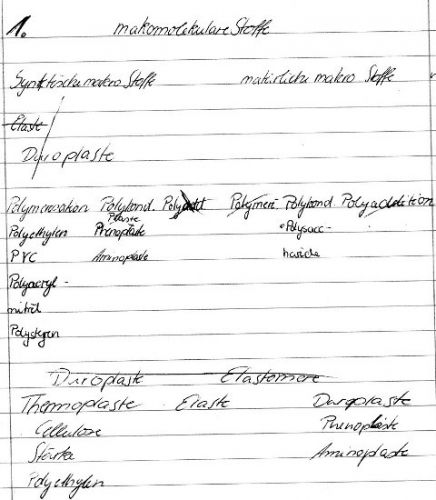 1. makomolekulare Stoffe
Synthetische makro Stoffe natürliche makro Stoffe
Elaste
Duroplaste
Polymerisation Polykond. Polyadd Polymeri. Polykond Polyaddition
Plaste
Polyethylen Phenoplaste Polysacc-
PVC Aminoplaste haride
Polyacryl-
nitril
Polystyren
Duroplaste Elastomere
Thermoplaste Elaste Duroplaste
Cellulose Phenoplaste
Stärke Aminoplaste
Polyethylen